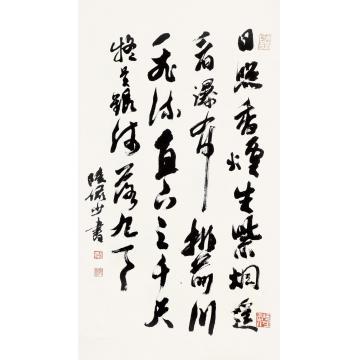 日照香炉生紫烟遥
看瀑布挂前川
飞流直下三千尺
疑是银河落九天
陆俨少书